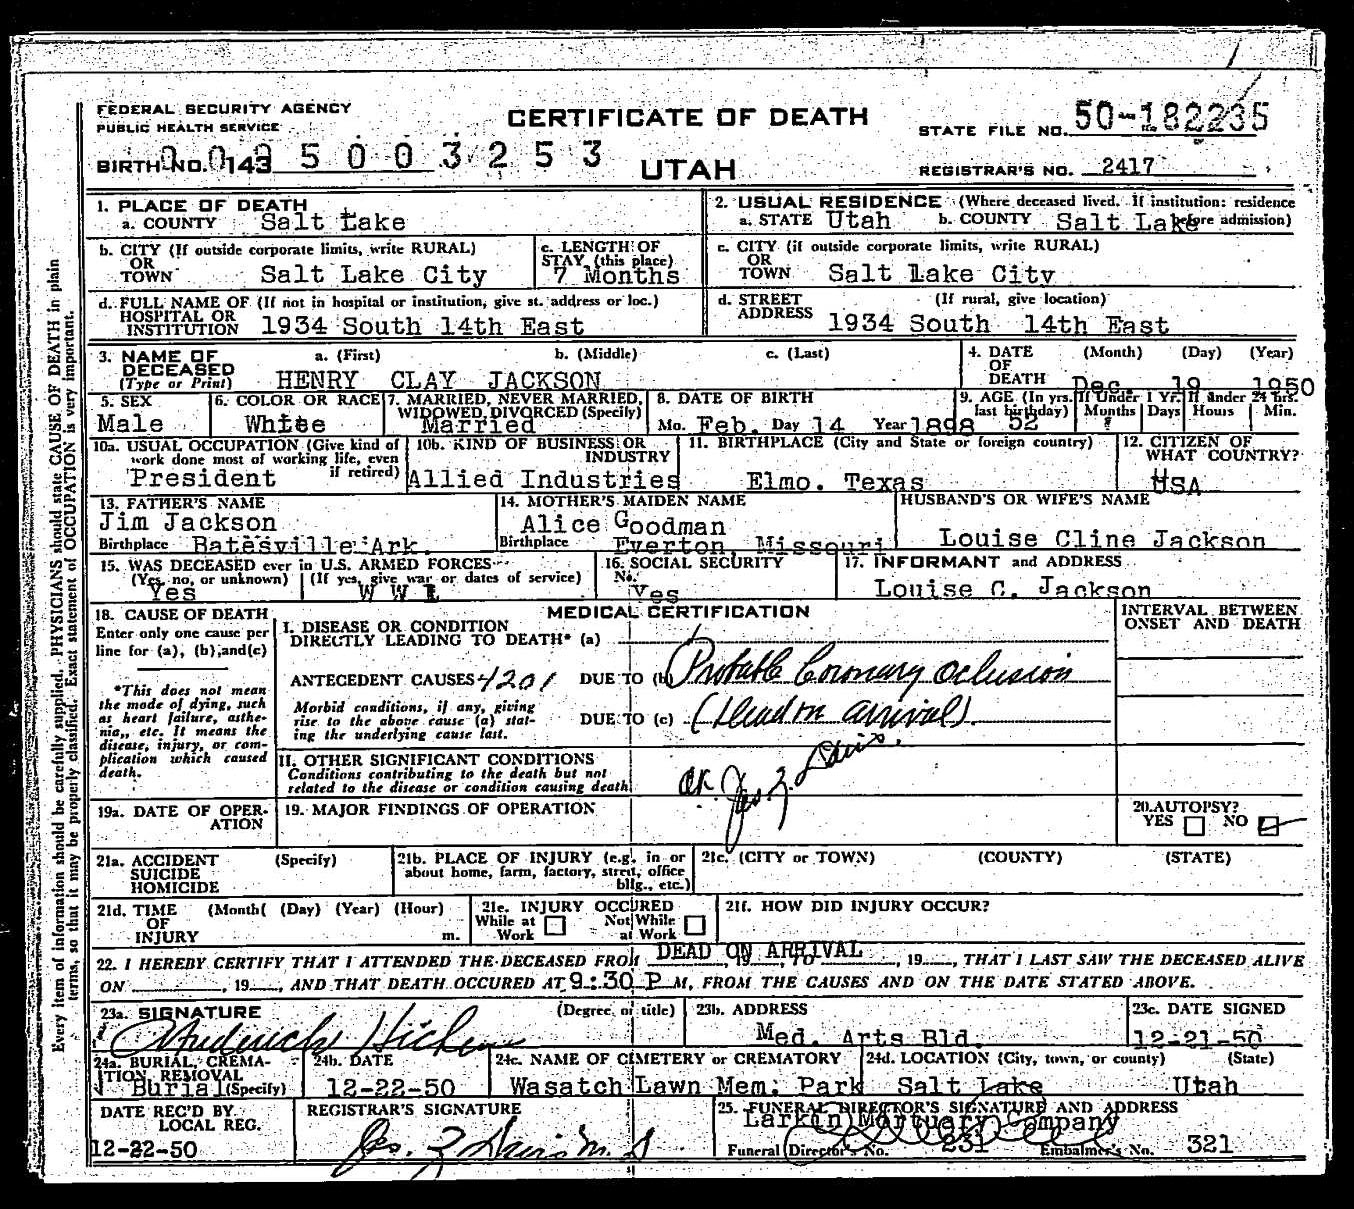 FEDERAL SECURITY AGENCY
PUBLIC HEALTH SERVICE
CERTIFICATE OF DEATH
UTAH
STATE FILE NO. 50-182235
BIRTH NO. 143 5 0 0 3 2 5 3
REGISTRAR'S NO. 2417
1. PLACE OF DEATH
a. COUNTY Salt Lake
2. USUAL RESIDENCE (Where deceased lived. If institution: residence before admission)
a. STATE Utah b. COUNTY Salt Lake
b. CITY (If outside corporate limits, write RURAL)
OR
TOWN Salt Lake City
c. LENGTH OF
STAY (this place)
7 Months
c. CITY (if outside corporate limits, write RURAL)
OR
TOWN Salt Lake City
d. FULL NAME OF (If not in hospital or institution, give st. address or loc.)
HOSPITAL OR
INSTITUTION 1934 South 14th East
d. STREET (If rural, give location)
ADDRESS 1934 South 14th East
3. NAME OF DECEASED
(Type or Print)
a. (First) b. (Middle) c. (Last)
HENRY CLAY JACKSON
4. DATE OF DEATH (Month) (Day) (Year)
Dec. 19 1950
5. SEX
Male
6. COLOR OR RACE
White
7. MARRIED, NEVER MARRIED,
WIDOWED, DIVORCED (Specify)
Married
8. DATE OF BIRTH
Mo. Feb. Day 14 Year 1898
9. AGE (In yrs. last birthday) 52
If Under 1 Yr. Months Days
If under 24 hrs. Hours Min.
10a. USUAL OCCUPATION (Give kind of
work done most of working life, even
if retired)
President
10b. KIND OF BUSINESS OR
INDUSTRY
Allied Industries
11. BIRTHPLACE (City and State or foreign country)
Elmo. Texas
12. CITIZEN OF
WHAT COUNTRY?
USA
13. FATHER'S NAME
Jim Jackson
Birthplace Batesville Ark.
14. MOTHER'S MAIDEN NAME
Alice Goodman
Birthplace Everton, Missouri
HUSBAND'S OR WIFE'S NAME
Louise Cline Jackson
15. WAS DECEASED ever in U.S. ARMED FORCES
(Yes, no, or unknown) (If yes, give war or dates of service)
Yes W W I
16. SOCIAL SECURITY
No.
Yes
17. INFORMANT and ADDRESS
Louise C. Jackson
18. CAUSE OF DEATH
Enter only one cause per
line for (a), (b), and (c)
*This does not mean
the mode of dying, such
as heart failure, asthe-
nia, etc. It means the
disease, injury, or com-
plication which caused
death.
MEDICAL CERTIFICATION
I. DISEASE OR CONDITION
DIRECTLY LEADING TO DEATH* (a)
ANTECEDENT CAUSES 4201 DUE TO (b) Probable Coronary Oclusion
Morbid conditions, if any, giving
rise to the above cause (a) stat-
ing the underlying cause last.
DUE TO (c) (Dead on arrival)
II. OTHER SIGNIFICANT CONDITIONS
Conditions contributing to the death but not
related to the disease or condition causing death
OK. Jas. Z. Davis.
INTERVAL BETWEEN
ONSET AND DEATH
19a. DATE OF OPER-
ATION
19. MAJOR FINDINGS OF OPERATION
20. AUTOPSY?
YES NO
21a. ACCIDENT (Specify)
SUICIDE
HOMICIDE
21b. PLACE OF INJURY (e.g., in or
about home, farm, factory, street, office
bllg., etc.)
21c. (CITY or TOWN) (COUNTY) (STATE)
21d. TIME (Month( (Day) (Year) (Hour)
OF
INJURY m.
21e. INJURY OCCURED
While at Work Not While at Work
21f. HOW DID INJURY OCCUR?
22. I HEREBY CERTIFY THAT I ATTENDED THE DECEASED FROM DEAD ON ARRIVAL, 19__, TO, 19__, THAT I LAST SAW THE DECEASED ALIVE
ON, 19__, AND THAT DEATH OCCURED AT 9:30 P M, FROM THE CAUSES AND ON THE DATE STATED ABOVE.
23a. SIGNATURE (Degree or title)
23b. ADDRESS
Med. Arts Bld.
23c. DATE SIGNED
12-21-50
24a. BURIAL, CREMA-
TION REMOVAL
Burial (Specify)
24b. DATE
12-22-50
24c. NAME OF CIMETERY or CREMATORY
Wasatch Lawn Mem. Park
24d. LOCATION (City, town, or county) (State)
Salt Lake Utah
DATE REC'D BY
LOCAL REG.
12-22-50
REGISTRAR'S SIGNATURE
Jas. Z Davis M.D
25. FUNERAL DIRECTOR'S SIGNATURE AND ADDRESS
Larkin Mortuary Company
Funeral Director's No. 231 Embalmer's No. 321
Every item of information should be carefully supplied. PHYSICIANS should state CAUSE OF DEATH in plain
terms, so that it may be properly classified. Exact statement of OCCUPATION is very important.